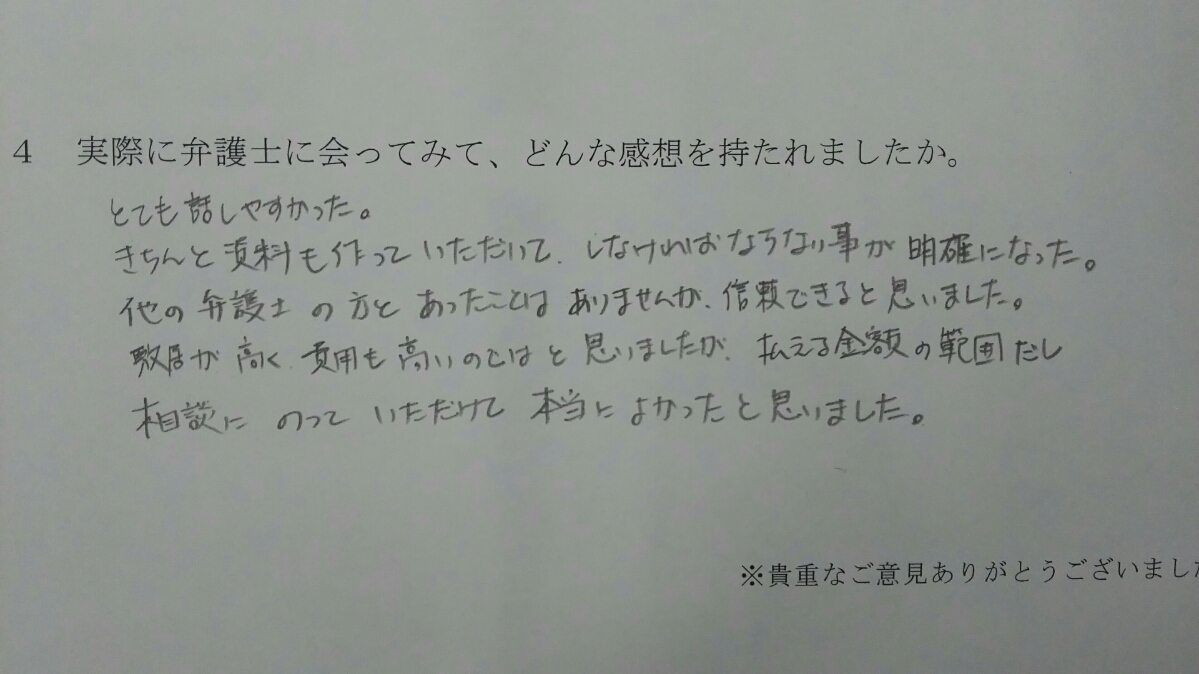 4 実際に弁護士に会ってみて、どんな感想を持たれましたか。
とても話しやすかった。
きちんと資料も作っていただいて、しなければならない事が明確になった。
他の弁護士の方とあったことはありませんが、信頼できると思いました。
敷居が高く、費用も高いのではと思いましたが、払える金額の範囲だし
相談にのっていただけて本当によかったと思いました。
※貴重なご意見ありがとうございました